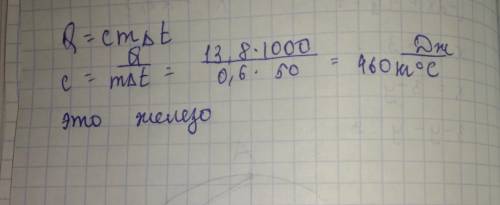 Q = cmΔt
c = Q/mΔt = 13,8·1000/0,6·50 = 460 Дж/кг°C
это железо